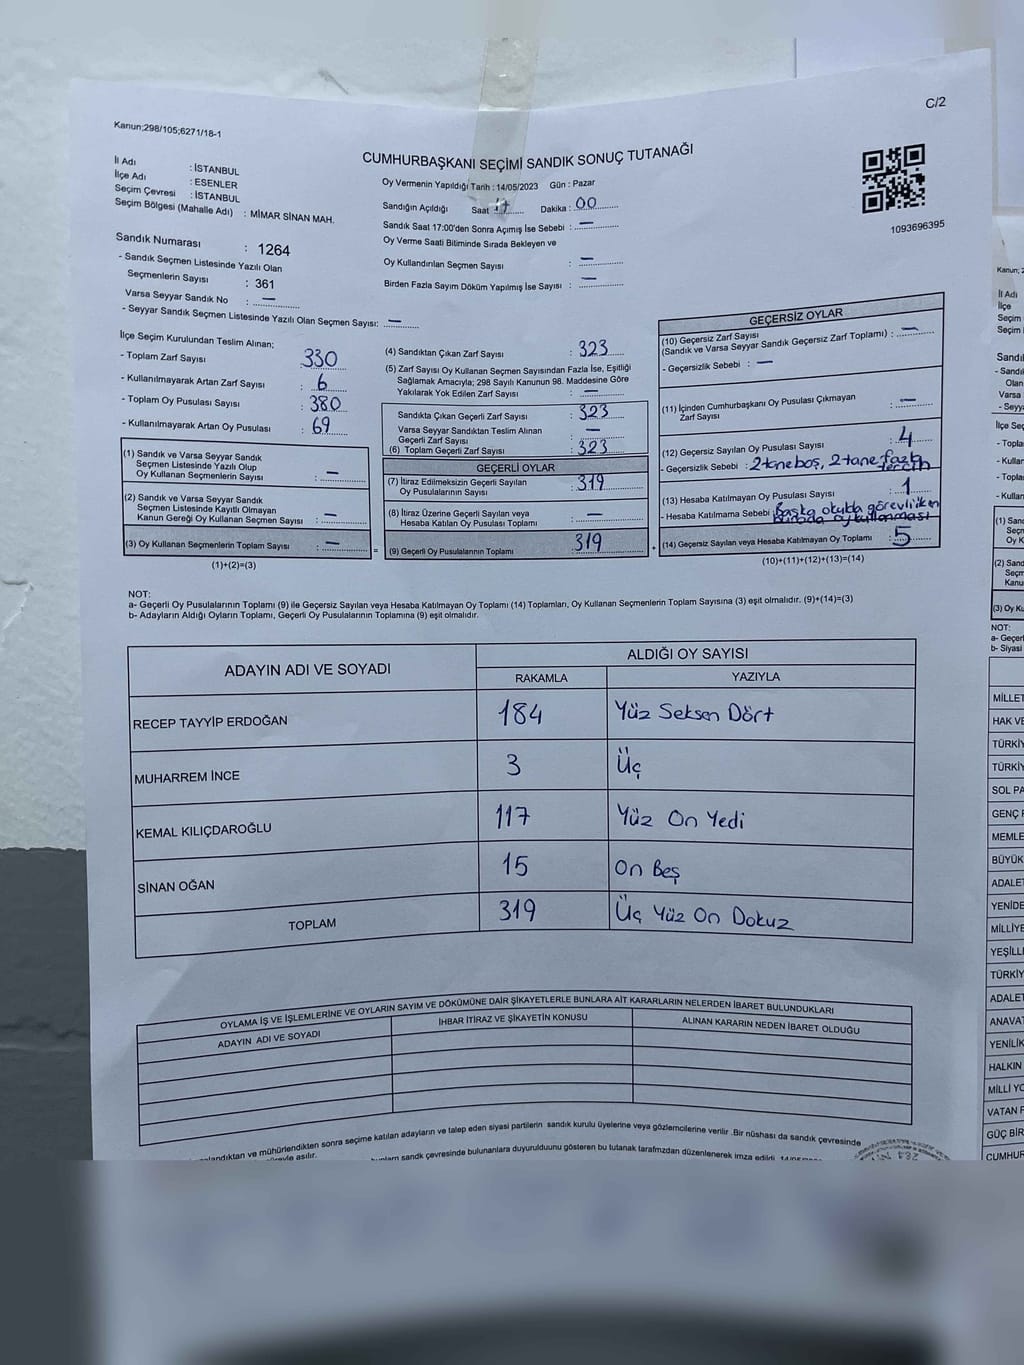 C/2
Kanun;298/105;6271/18-1
CUMHURBAŞKANI SEÇİMİ SANDIK SONUÇ TUTANAĞI
İl Adı : İSTANBUL
İlçe Adı : ESENLER
Seçim Çevresi : İSTANBUL
Seçim Bölgesi (Mahalle Adı) : MİMAR SİNAN MAH.
Sandık Numarası : 1264
- Sandık Seçmen Listesinde Yazılı Olan
Seçmenlerin Sayısı : 361
Varsa Seyyar Sandık No : —
- Seyyar Sandık Seçmen Listesinde Yazılı Olan Seçmen Sayısı: —
Oy Vermenin Yapıldığı Tarih : 14/05/2023 Gün : Pazar
Sandığın Açıldığı Saat 17 Dakika : 00
Sandık Saat 17:00'den Sonra Açımış İse Sebebi : —
Oy Verme Saati Bitiminde Sırada Bekleyen ve
Oy Kullandırılan Seçmen Sayısı : —
Birden Fazla Sayım Döküm Yapılmış İse Sayısı : —
1093696395
İlçe Seçim Kurulundan Teslim Alınan;
- Toplam Zarf Sayısı : 330
- Kullanılmayarak Artan Zarf Sayısı : 6
- Toplam Oy Pusulası Sayısı : 380
- Kullanılmayarak Artan Oy Pusulası : 69
(1) Sandık ve Varsa Seyyar Sandık
Seçmen Listesinde Yazılı Olup
Oy Kullanan Seçmenlerin Sayısı : —
(2) Sandık ve Varsa Seyyar Sandık
Seçmen Listesinde Kayıtlı Olmayan
Kanun Gereği Oy Kullanan Seçmen Sayısı : —
(3) Oy Kullanan Seçmenlerin Toplam Sayısı : — =
(1)+(2)=(3)
(4) Sandıktan Çıkan Zarf Sayısı : 323
(5) Zarf Sayısı Oy Kullanan Seçmen Sayısından Fazla İse, Eşitliği
Sağlamak Amacıyla; 298 Sayılı Kanunun 98. Maddesine Göre
Yakılarak Yok Edilen Zarf Sayısı : —
Sandıkta Çıkan Geçerli Zarf Sayısı : 323
Varsa Seyyar Sandıktan Teslim Alınan
Geçerli Zarf Sayısı : —
(6) Toplam Geçerli Zarf Sayısı : 323
GEÇERLİ OYLAR
(7) İtiraz Edilmeksizin Geçerli Sayılan
Oy Pusulalarının Sayısı : 319
(8) İtiraz Üzerine Geçerli Sayılan veya
Hesaba Katılan Oy Pusulası Toplamı : —
(9) Geçerli Oy Pusulalarının Toplamı 319 +
GEÇERSİZ OYLAR
(10) Geçersiz Zarf Sayısı
(Sandık ve Varsa Seyyar Sandık Geçersiz Zarf Toplamı) : —
- Geçersizlik Sebebi : —
(11) İçinden Cumhurbaşkanı Oy Pusulası Çıkmayan
Zarf Sayısı : —
(12) Geçersiz Sayılan Oy Pusulası Sayısı : 4
- Geçersizlik Sebebi : 2 tane boş, 2 tane fazla
tercih
(13) Hesaba Katılmayan Oy Pusulası Sayısı : 1
- Hesaba Katılmama Sebebi : Başka okulda görevliiken
burada oy kullanması
(14) Geçersiz Sayılan veya Hesaba Katılmayan Oy Toplamı : 5
(10)+(11)+(12)+(13)=(14)
NOT:
a- Geçerli Oy Pusulalarının Toplamı (9) ile Geçersiz Sayılan veya Hesaba Katılmayan Oy Toplamı (14) Toplamları, Oy Kullanan Seçmenlerin Toplam Sayısına (3) eşit olmalıdır. (9)+(14)=(3)
b- Adayların Aldığı Oyların Toplamı, Geçerli Oy Pusulalarının Toplamına (9) eşit olmalıdır.
ADAYIN ADI VE SOYADI ALDIĞI OY SAYISI
RAKAMLA YAZIYLA
RECEP TAYYİP ERDOĞAN 184 Yüz Seksen Dört
MUHARREM İNCE 3 Üç
KEMAL KILIÇDAROĞLU 117 Yüz On Yedi
SİNAN OĞAN 15 On Beş
TOPLAM 319 Üç Yüz On Dokuz
OYLAMA İŞ VE İŞLEMLERİNE VE OYLARIN SAYIM VE DÖKÜMÜNE DAİR ŞİKAYETLERLE BUNLARA AİT KARARLARIN NELERDEN İBARET BULUNDUKLARI
ADAYIN ADI VE SOYADI İHBAR İTİRAZ VE ŞİKAYETİN KONUSU ALINAN KARARIN NEDEN İBARET OLDUĞU
ve mühürlendikten sonra seçime katılan adayların ve talep eden siyasi partilerin sandık kurulu üyelerine veya gözlemcilerine verilir .Bir nüshası da sandık çevresinde
asılır.
sandık çevresinde bulunanlara duyurulduunu gösteren bu tutanak tarafmzdan düzenlenerek imza edildi.
Kanun;
İl Adı
İlçe
Seçim
Seçim
NOT:
MİLLET
HAK VE
TÜRKİY
TÜRKİY
SOL PA
GENÇ P
MEMLE
BÜYÜK
ADALET
YENİDE
MİLLİYE
YEŞİLL
TÜRKİY
ADALET
ANAVAT
YENİLİK
HALKIN
MİLLİ YO
VATAN P
GÜÇ BİR
CUMHUR